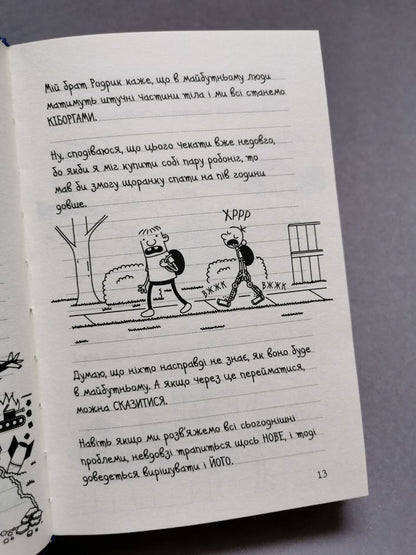 Мій брат Родрик каже, що в майбутньому люди
матимуть штучні частини тіла і ми всі станемо
КІБОРГАМИ.
Ну, сподіваюся, що цього чекати вже недовго,
бо якби я міг купити собі пару робоніг, то
мав би змогу щоранку спати на пів години
довше.
ХРРР
ВЖЖК
ВЖЖК
Думаю, що ніхто насправді не знає, як воно буде
в майбутньому. А якщо через це перейматися,
можна СКАЗИТИСЯ.
Навіть якщо ми розв'яжемо всі сьогоднішні
проблеми, невдовзі трапиться щось НОВЕ, і тоді
доведеться вирішувати і ЙОГО.
13